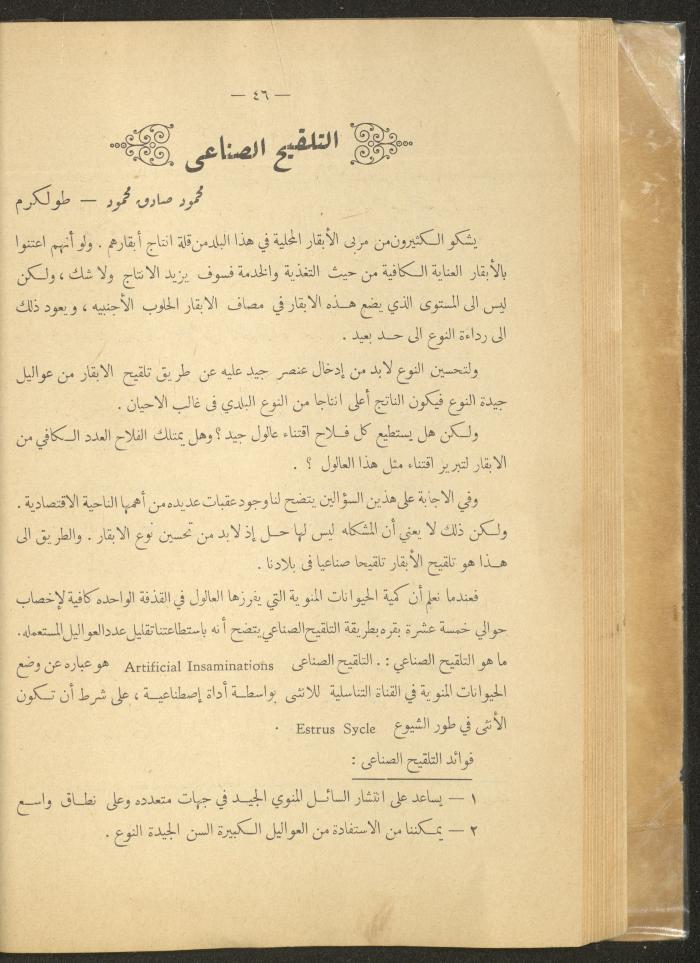 — ٤٦ —
التلقيح الصناعى
محمود صادق محمود — طولكرم
يشكو الكثيرون من مربى الأبقار المحلية في هذا البلد من قلة انتاج أبقارهم . ولو أنهم اعتنوا
بالأبقار العناية الكافية من حيث التغذية والخدمة فسوف يزيد الانتاج ولا شك ، ولكن
ليس الى المستوى الذي يضع هذه الابقار في مصاف الابقار الحلوب الأجنبيه ، ويعود ذلك
الى رداءة النوع الى حد بعيد .
ولتحسين النوع لابد من إدخال عنصر جيد عليه عن طريق تلقيح الابقار من عواليل
جيدة النوع فيكون الناتج أعلى انتاجا من النوع البلدي فى غالب الاحيان .
ولكن هل يستطيع كل فلاح اقتناء عالول جيد ؟ وهل يمتلك الفلاح العدد الكافي من
الابقار لتبرير اقتناء مثل هذا العالول ؟ .
وفي الاجابة على هذين السؤالين يتضح لنا وجود عقبات عديده من أهمها الناحية الاقتصادية .
ولكن ذلك لا يعني أن المشكله ليس لها حل إذ لابد من تحسين نوع الابقار . والطريق الى
هذا هو تلقيح الأبقار تلقيحا صناعيا فى بلادنا .
فعندما نعلم أن كمية الحيوانات المنوية التي يفرزها العالول في القذفة الواحده كافية لإخصاب
حوالي خمسة عشرة بقره بطريقة التلقيح الصناعي يتضح أنه باستطاعتنا تقليل عدد العواليل المستعمله.
ما هو التلقيح الصناعي : . التلقيح الصناعى Artificial Insaminations هو عباره عن وضع
الحيوانات المنوية في القناة التناسلية للانثى بواسطة أداة إصطناعية ، على شرط أن تكون
الأنثى في طور الشيوع Estrus Sycle .
فوائد التلقيح الصناعى :
١ — يساعد على انتشار السائل المنوي الجيد في جهات متعدده وعلى نطاق واسع
٢ — يمكننا من الاستفادة من العواليل الكبيرة السن الجيدة النوع .